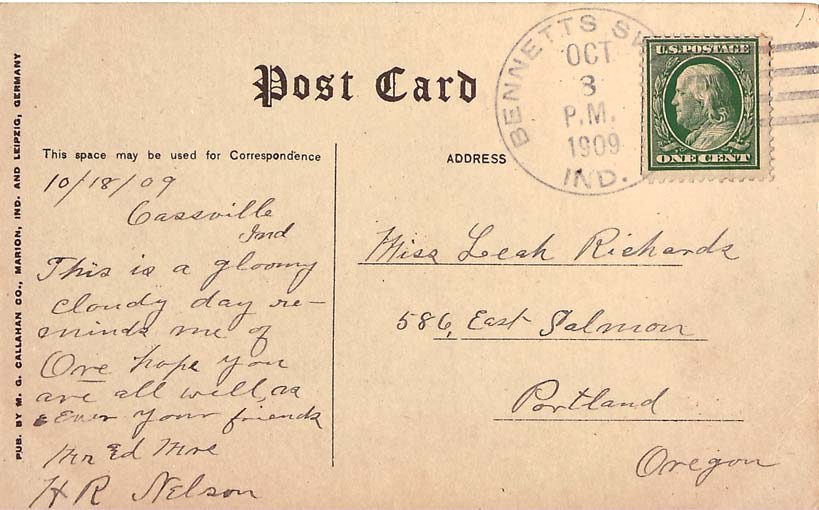 PUB. BY M. G. CALLAHAN CO., MARION, IND. AND LEIPZIG, GERMANY
Post Card
BENNETTS SW
OCT
3
P.M.
1909
IND.
U.S. POSTAGE
ONE CENT
This space may be used for Correspondence
ADDRESS
10/18/09
Cassville
Ind
This is a gloomy
cloudy day re-
minds me of
Ore hope you
are all well, as
ever your friends
Mr Ed Mrs
H R Nelson
Miss Leah Richards
586, East Salmon
Portland
Oregon